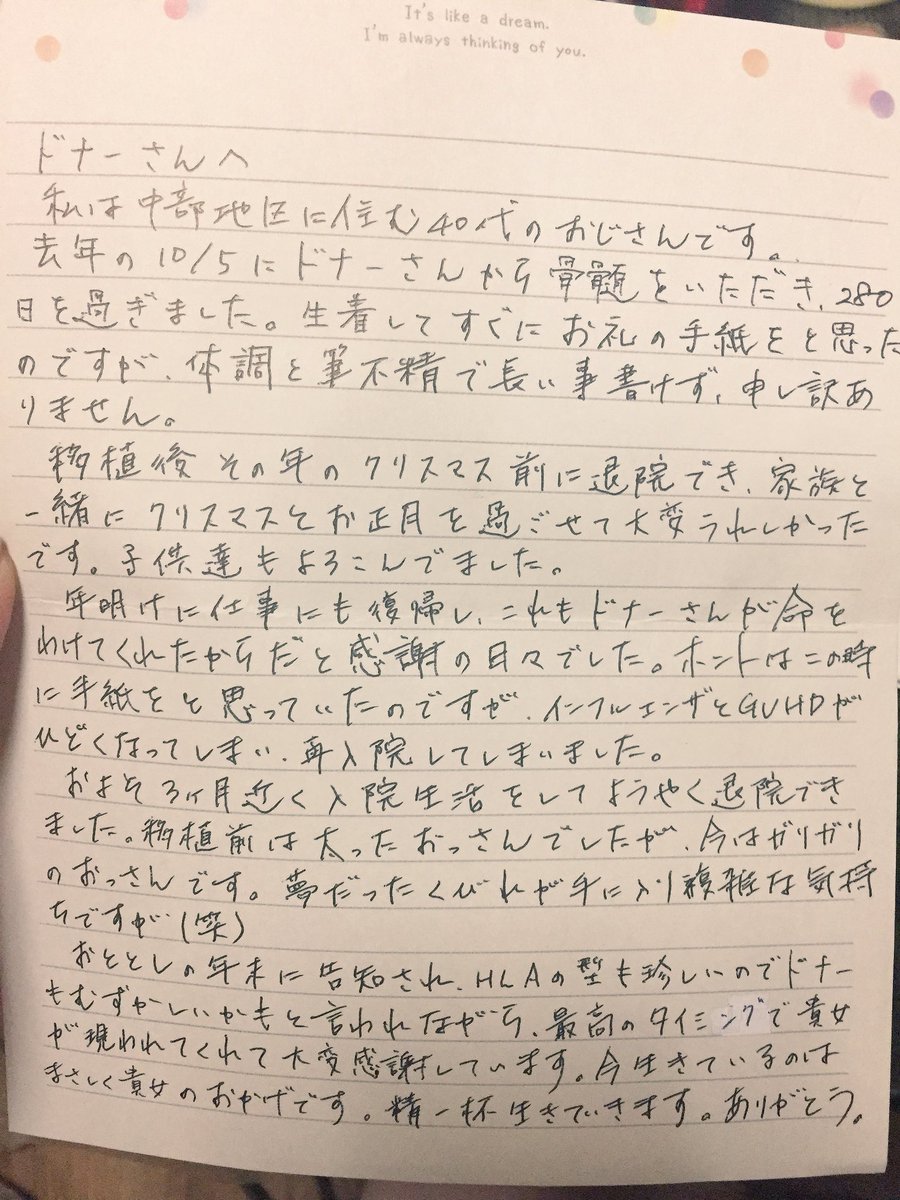 It's like a dream.
I'm always thinking of you.
ドナーさんへ
私は中部地区に住む40代のおじさんです。
去年の10/5にドナーさんから骨髄をいただき、280
日を過ぎました。生着してすぐにお礼の手紙をと思った
のですが、体調と筆不精で長い事書けず、申し訳あ
りません。
移植後その年のクリスマス前に退院でき、家族と
一緒にクリスマスとお正月を過ごせて大変うれしかった
です。子供達もよろこんでました。
年明けに仕事にも復帰し、これもドナーさんが命を
わけてくれたからだと感謝の日々でした。ホントはこの時
に手紙をと思っていたのですが、インフルエンザとGVHDが
ひどくなってしまい、再入院してしまいました。
およそ3ヶ月近く入院生活をしてようやく退院でき
ました。移植前は太ったおっさんでしたが、今はガリガリ
のおっさんです。夢だったくびれが手に入り複雑な気持
ちですが(笑)
おととしの年末に告知され、HLAの型も珍しいのでドナー
もむずかしいかもと言われながら、最高のタイミングで貴女
が現われてくれて大変感謝しています。今生きているのは
まさしく貴女のおかげです。精一杯生きていきます。ありがとう。